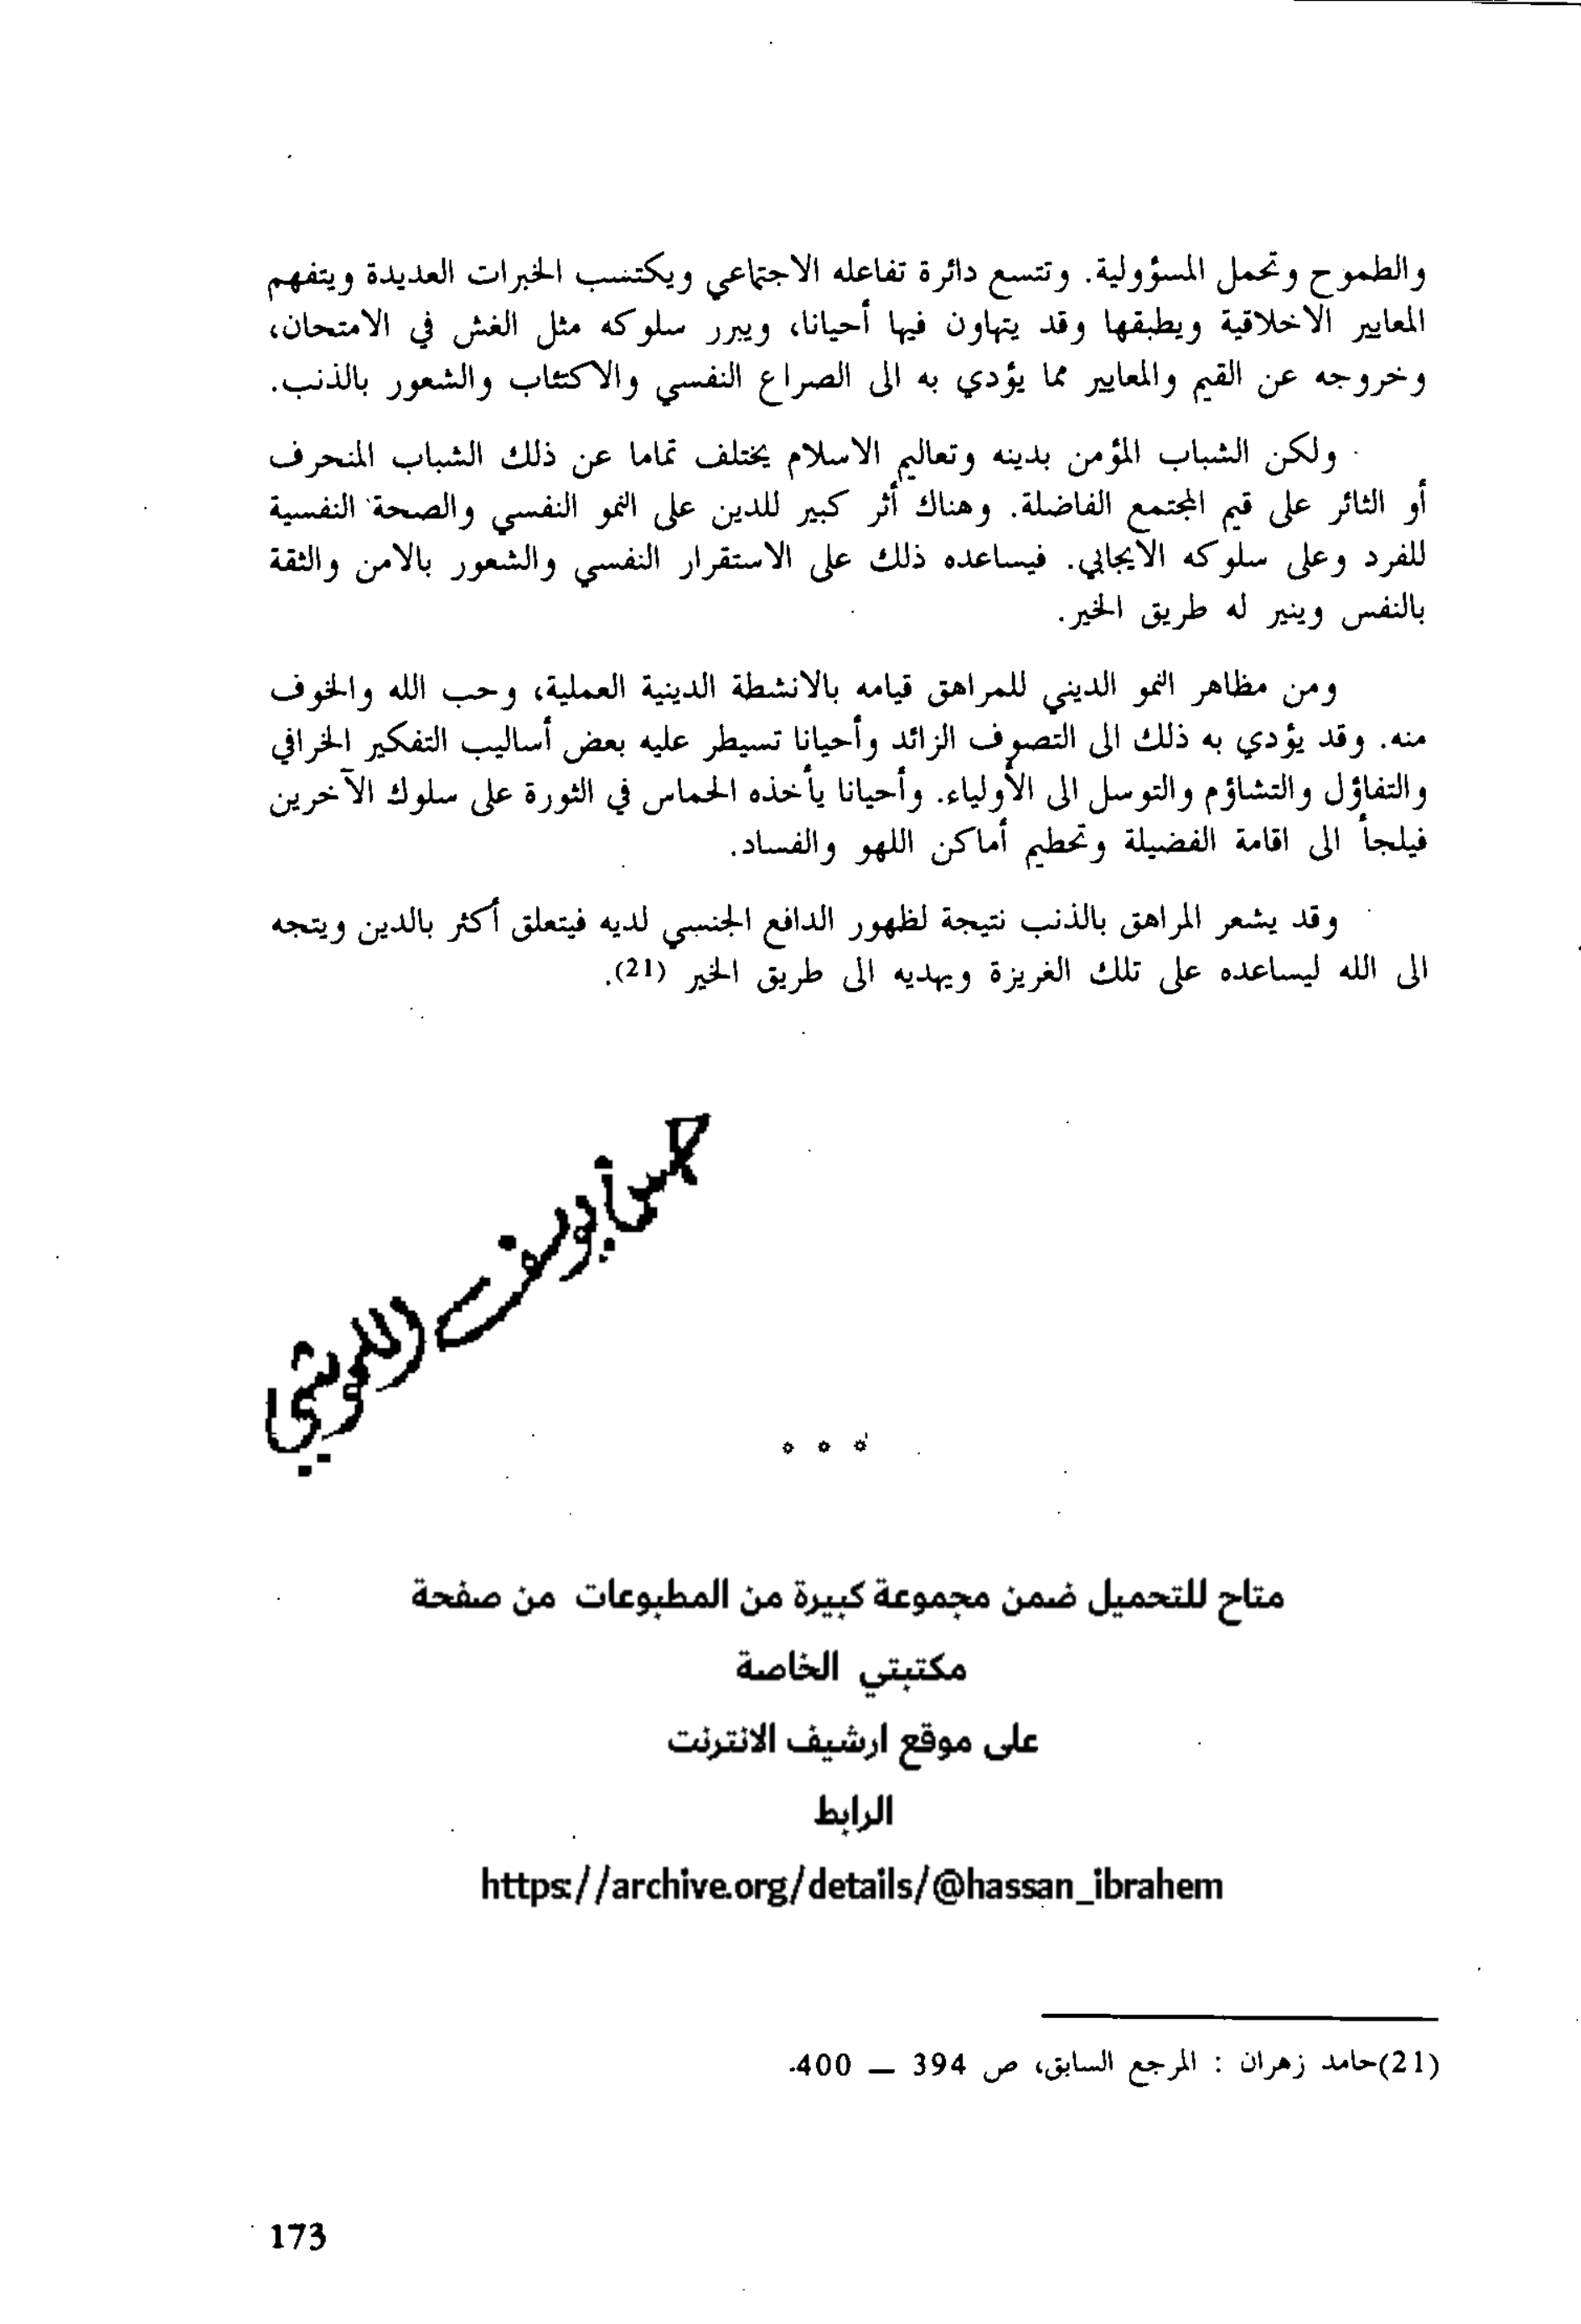 والطموح وتحمل المسؤولية. وتتسع دائرة تفاعله الاجتماعي ويكتسب الخبرات العديدة ويتفهم
المعايير الاخلاقية ويطبقها وقد يتهاون فيها أحيانا، ويبرر سلوكه مثل الغش في الامتحان،
وخروجه عن القيم والمعايير مما يؤدي به الى الصراع النفسي والاكتئاب والشعور بالذنب.
ولكن الشباب المؤمن بدينه وتعاليم الاسلام يختلف تماما عن ذلك الشباب المنحرف
أو الثائر على قيم المجتمع الفاضلة. وهناك أثر كبير للدين على النمو النفسي والصحة النفسية
للفرد وعلى سلوكه الايجابي. فيساعده ذلك على الاستقرار النفسي والشعور بالامن والثقة
بالنفس وينير له طريق الخير.
ومن مظاهر النمو الديني للمراهق قيامه بالانشطة الدينية العملية، وحب الله والخوف
منه. وقد يؤدي به ذلك الى التصوف الزائد وأحيانا تسيطر عليه بعض أساليب التفكير الخرافي
والتفاؤل والتشاؤم والتوسل الى الأولياء. وأحيانا يأخذه الحماس في الثورة على سلوك الآخرين
فيلجأ الى اقامة الفضيلة وتحطيم أماكن اللهو والفساد.
وقد يشعر المراهق بالذنب نتيجة لظهور الدافع الجنسي لديه فيتعلق أكثر بالدين ويتجه
الى الله ليساعده على تلك الغريزة ويهديه الى طريق الخير (21).
متاح للتحميل ضمن مجموعة كبيرة من المطبوعات من صفحة
مكتبتي الخاصة
على موقع ارشيف الانترنت
الرابط
https://archive.org/details/@hassan_ibrahem
(21)حامد زهران : المرجع السابق، ص 394 — 400.
173